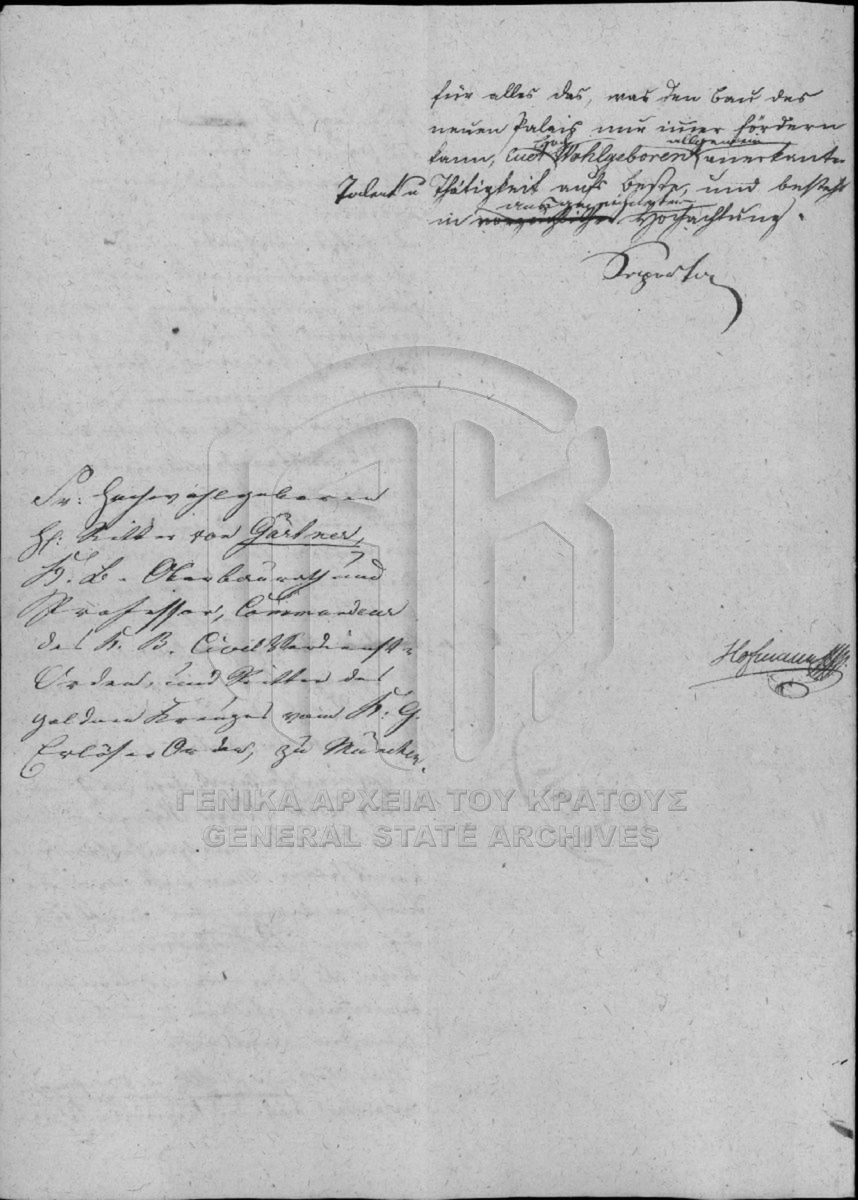 für alles das, was den Bau des
neuen Palais nur immer fördern
kann, Euer Hoch Wohlgeboren allgemein anerkante
Talent u Thätigkeit aufs beste, und besteht
in ausgezeichneter Hochachtung.
Sr: Hochwohlgeboren
H: Ritter von Gärtner,
K. B. Oberbaurath und
Professor, Commandeur
des K. B. Civil Verdienst-
Orden, und Ritter des
golden Kreuzes vom K. G.
Erlöser Orden, zu München.
Hofmann
ΓΕΝΙΚΑ ΑΡΧΕΙΑ ΤΟΥ ΚΡΑΤΟΥΣ
GENERAL STATE ARCHIVES